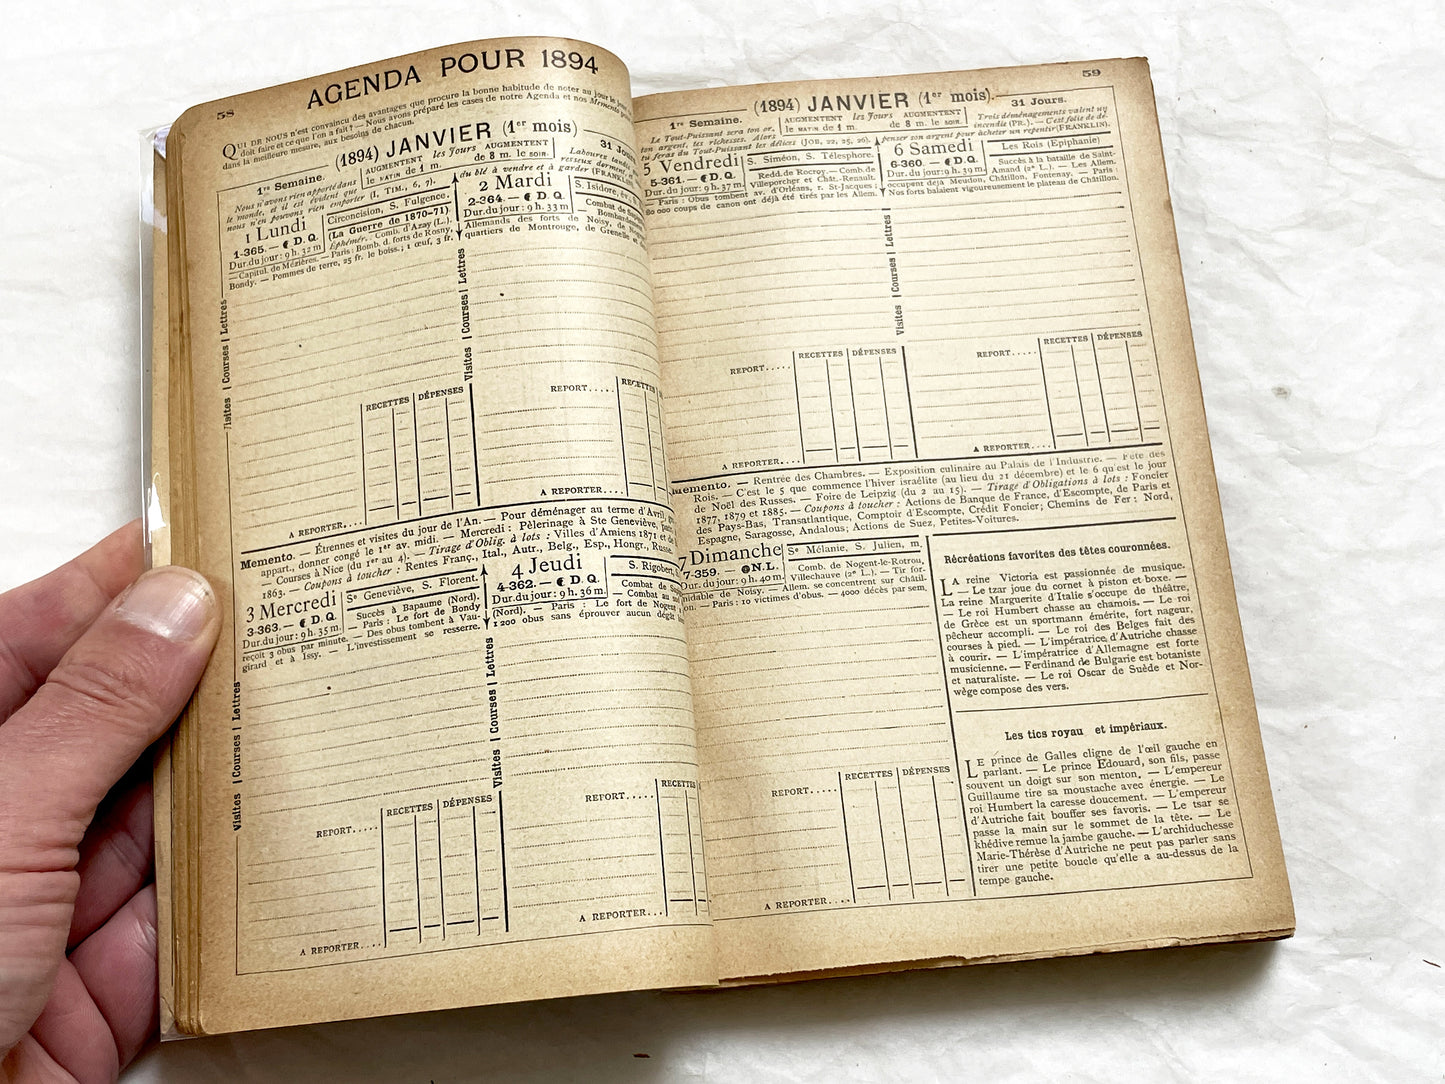 58
AGENDA POUR 1894
QUI DE NOUS n'est convaincu des avantages que procure la bonne habitude de noter au jour le jour
doit faire et ce que l'on a fait? — Nous avons préparé les cases de notre Agenda et nos Memento
dans la meilleure mesure, aux besoins de chacun.
(1894) JANVIER (1er mois)
1re Semaine.
AUGMENTENT les Jours AUGMENTENT
le MATIN de 1 m. de 8 m. le SOIR.
31 Jours
Nous n'avons rien apporté dans
le monde, et il est évident que
nous n'en pouvons rien emporter (I, TIM., 6, 7).
Labourez tandis
resseux dorment,
du blé à vendre et à garder (FRANKLIN
1 Lundi
1-365. — D. Q.
Dur. du jour: 9 h. 32 m
Circoncision, S. Fulgence.
(La Guerre de 1870-71)
Éphémér. Comb. d'Azay (L.).
— Capitul. de Mézières. — Paris: Bomb. d. forts de Rosny,
Bondy. — Pommes de terre, 25 fr. le boiss.; 1 œuf, 3 fr.
Visites | Courses | Lettres
RECETTES DÉPENSES
A REPORTER....
2 Mardi
2-364. — D. Q.
Dur. du jour: 9 h. 33 m
S. Isidore,
Combat de
Bombard
Allemands des forts de Noisy, de
quartiers de Montrouge, de Grenelle
Visites | Courses | Lettres
REPORT.....
RECETTES
A REPORTER....
Memento. — Étrennes et visites du jour de l'An. — Pour déménager au terme d'Avril,
appart., donner congé le 1er av. midi. — Mercredi: Pèlerinage à Ste Geneviève,
— Courses à Nice (du 1er au 4). — Tirage d'Oblig. à lots: Villes d'Amiens 1871 et
1863. — Coupons à toucher: Rentes Franç., Ital., Autr., Belg., Esp., Hongr., Russe.
3 Mercredi
3-363. — D. Q.
Dur. du jour: 9 h. 35 m.
Se Geneviève, S. Florent.
Succès à Bapaume (Nord).
— Paris: Le fort de Bondy
reçoit 3 obus par minute. — Des obus tombent à Vau-
girard et à Issy. — L'investissement se resserre.
Visites | Courses | Lettres
REPORT.....
RECETTES DÉPENSES
A REPORTER....
4 Jeudi
4-362. — D. Q.
Dur. du jour: 9 h. 36 m.
S. Rigobert,
Combat de
Combat au
(Nord). — Paris: Le fort de Nogent
1 200 obus sans éprouver aucun dégât
Visites | Courses | Lettres
REPORT.....
RECETTES
A REPORTER...
59
(1894) JANVIER (1er mois).
1re Semaine.
AUGMENTENT les Jours AUGMENTENT
le MATIN de 1 m. de 8 m. le SOIR.
31 Jours.
Le Tout-Puissant sera ton or,
ton argent, tes richesses. Alors
tu feras du Tout-Puissant les délices (JOB, 22, 25, 26).
Trois déménagements valent un
incendie (PR.). — C'est folie de dé-
penser son argent pour acheter un repentir (FRANKLIN).
5 Vendredi
5-361. — D. Q.
Dur. du jour: 9 h. 37 m.
S. Siméon, S. Télesphore.
Redd. de Rocroy. — Comb. de
Villeporcher et Chât.-Renault.
— Paris: Obus tombent av. d'Orléans, r. St-Jacques;
80 000 coups de canon ont déjà été tirés par les Allem.
REPORT.....
RECETTES DÉPENSES
A REPORTER....
6 Samedi
6-360. — D. Q.
Dur. du jour: 9 h. 39 m.
Les Rois (Epiphanie)
Succès à la bataille de Saint-
Amand (2e L.). — Les Allem.
occupent déjà Meudon, Châtillon, Fontenay. — Paris:
Nos forts balaient vigoureusement le plateau de Châtillon.
Visites | Courses | Lettres
REPORT.....
RECETTES DÉPENSES
A REPORTER....
Memento. — Rentrée des Chambres. — Exposition culinaire au Palais de l'Industrie. — Fête des
Rois. — C'est le 5 que commence l'hiver israélite (au lieu du 21 décembre) et le 6 qu'est le jour
de Noël des Russes. — Foire de Leipzig (du 2 au 15). — Tirage d'Obligations à lots: Foncier
1877, 1879 et 1885. — Coupons à toucher: Actions de Banque de France, d'Escompte, de Paris et
des Pays-Bas, Transatlantique, Comptoir d'Escompte, Crédit Foncier; Chemins de Fer: Nord,
Espagne, Saragosse, Andalous; Actions de Suez, Petites-Voitures.
7 Dimanche
7-359. — N. L.
Dur. du jour: 9 h. 40 m.
Se Mélanie, S. Julien, m.
Comb. de Nogent-le-Rotrou,
Villechauve (2e L.). — Tir for-
midable de Noisy. — Allem. se concentrent sur Châtil-
on. — Paris: 10 victimes d'obus. — 4000 décès par sem.
REPORT.....
RECETTES DÉPENSES
A REPORTER....
Récréations favorites des têtes couronnées.
LA reine Victoria est passionnée de musique.
— Le tzar joue du cornet à piston et boxe. —
La reine Marguerite d'Italie s'occupe de théâtre,
— Le roi Humbert chasse au chamois. — Le roi
de Grèce est un sportmann émérite, fort nageur,
pêcheur accompli. — Le roi des Belges fait des
courses à pied. — L'impératrice d'Autriche chasse
à courir. — L'impératrice d'Allemagne est forte
musicienne. — Ferdinand de Bulgarie est botaniste
et naturaliste. — Le roi Oscar de Suède et Nor-
wège compose des vers.
Les tics royau et impériaux.
LE prince de Galles cligne de l'œil gauche en
parlant. — Le prince Edouard, son fils, passe
souvent un doigt sur son menton. — L'empereur
Guillaume tire sa moustache avec énergie. — Le
roi Humbert la caresse doucement. — L'empereur
d'Autriche fait bouffer ses favoris. — Le tsar se
passe la main sur le sommet de la tête. — Le
khédive remue la jambe gauche. — L'archiduchesse
Marie-Thérèse d'Autriche ne peut pas parler sans
tirer une petite boucle qu'elle a au-dessus de la
tempe gauche.